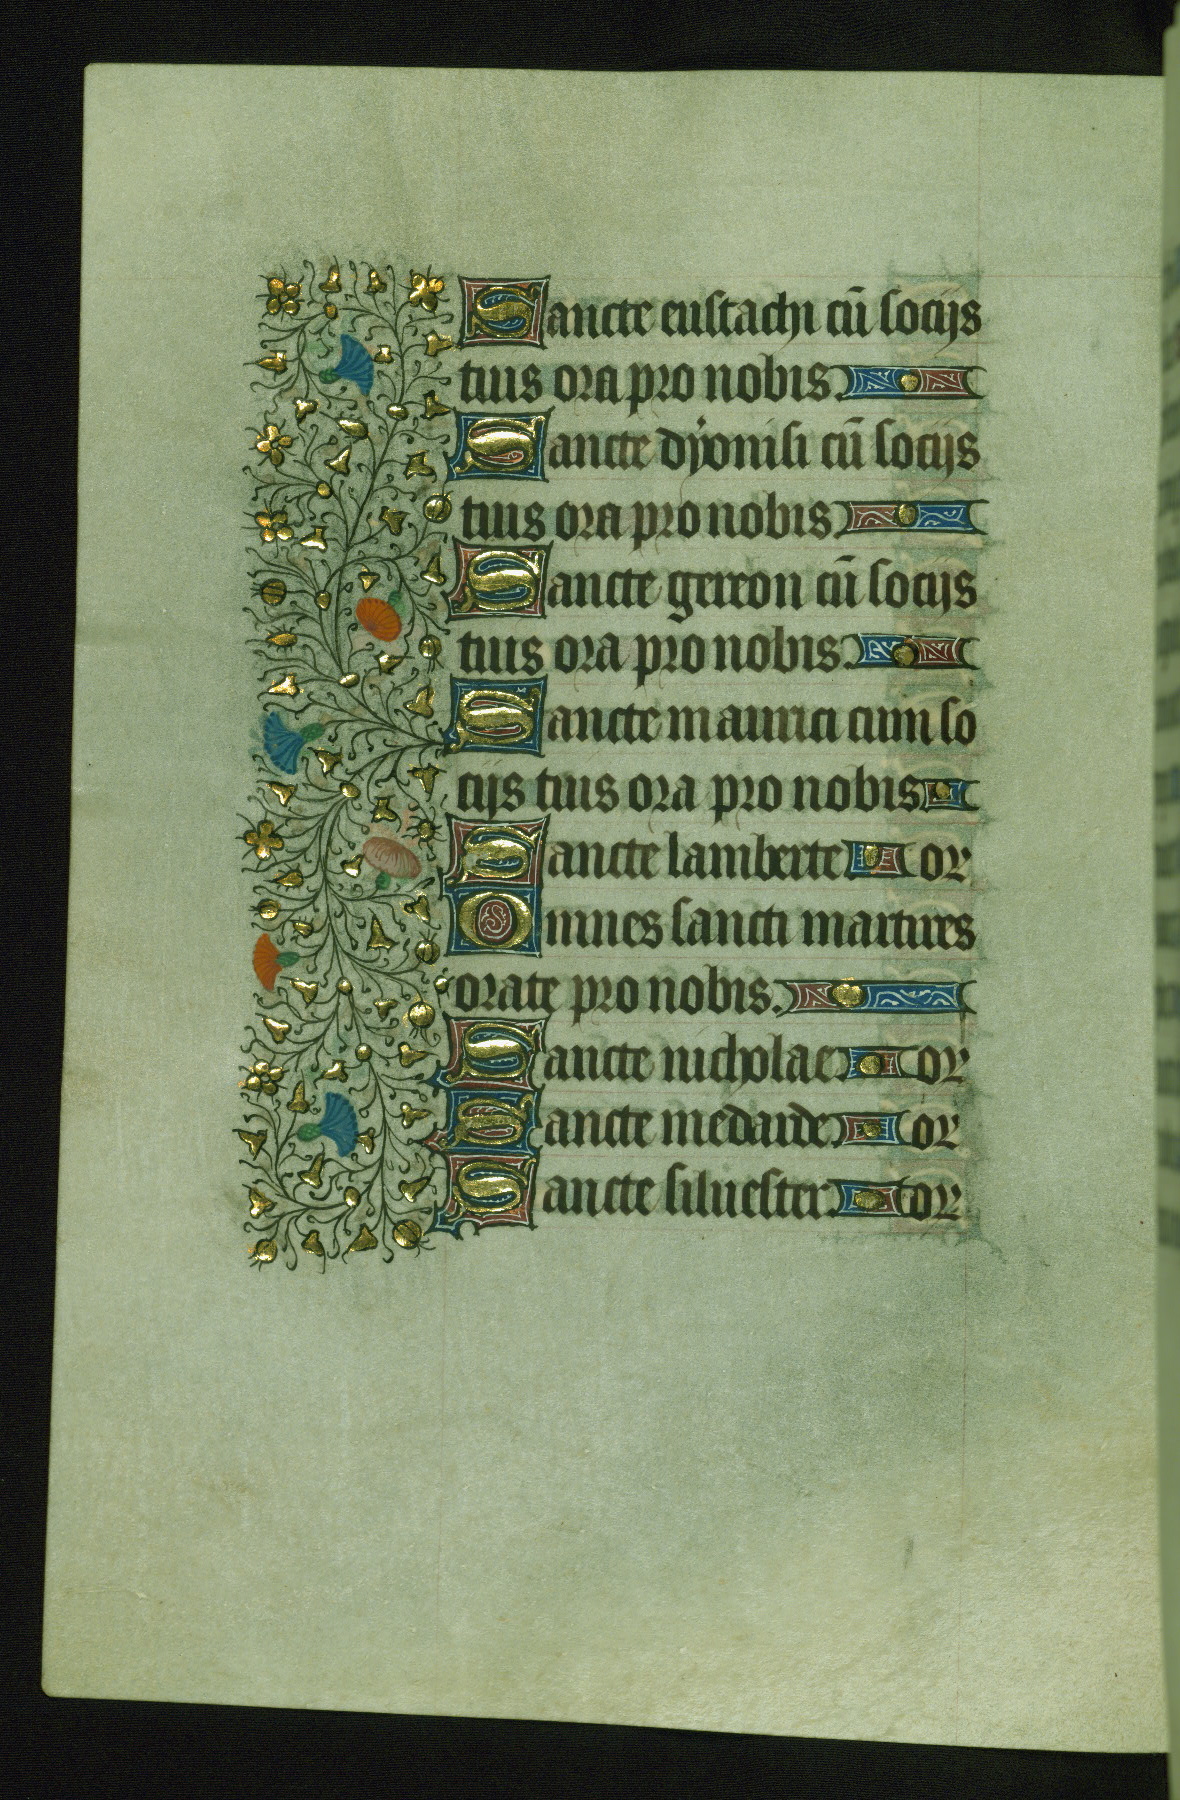 Sancte eustachi cū socijs
tuis ora pro nobis.
Sancte dyonisi cū socijs
tuis ora pro nobis.
Sancte gereon cū socijs
tuis ora pro nobis.
Sancte maurici cum so
cijs tuis ora pro nobis
Sancte lamberte or
Omnes sancti martires
orate pro nobis.
Sancte nicholae or
Sancte medarde or
Sancte siluester or